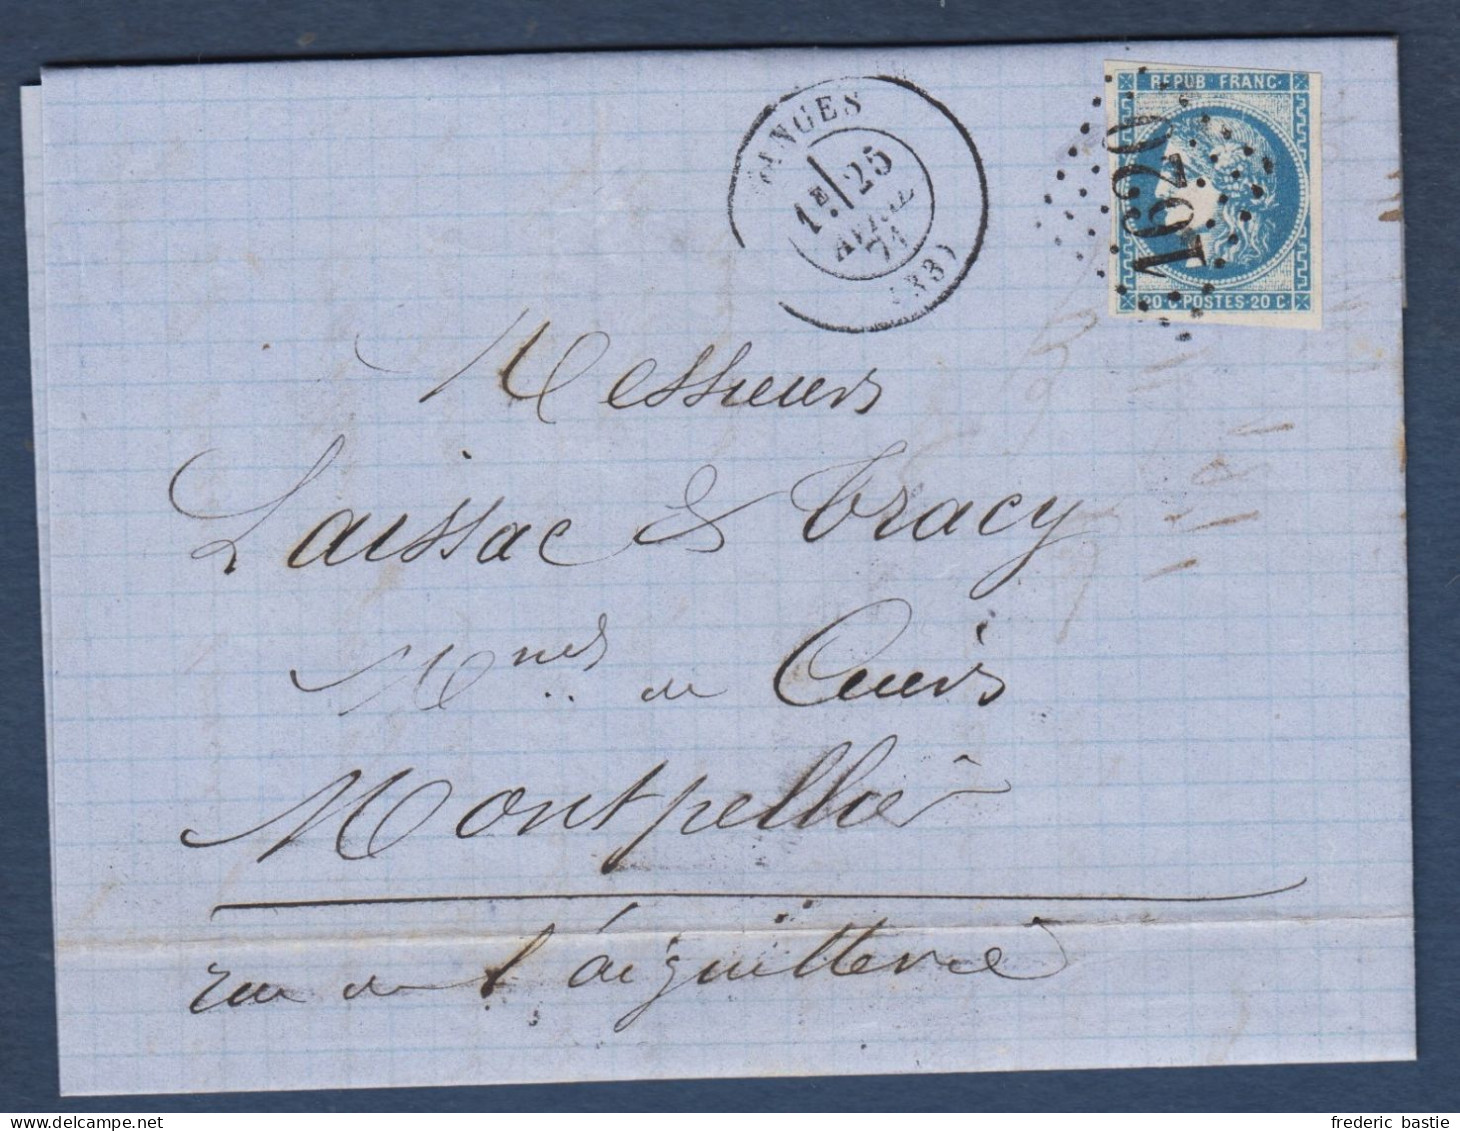 ANGES
1E 25
AVRIL
71
(33)
REPUB·FRANC·
1620
20 C·POSTES·20 C
Messieurs
Laissac & Tracy
Mnds de Cuirs
Montpellier
rue de l'aiguillerie
frederic bastie